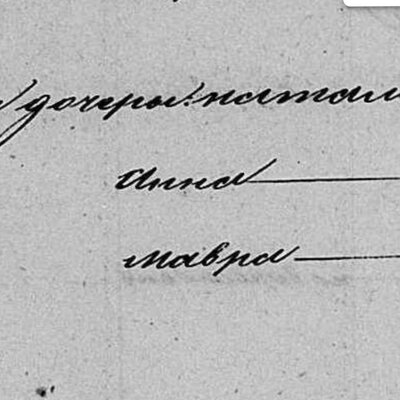 дочеры: натал
Анна
мавра